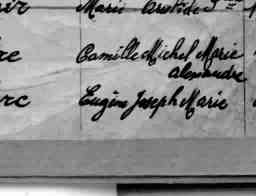 Marie Aristide
Camille Michel Marie
alexandre
Eugène Joseph Marie